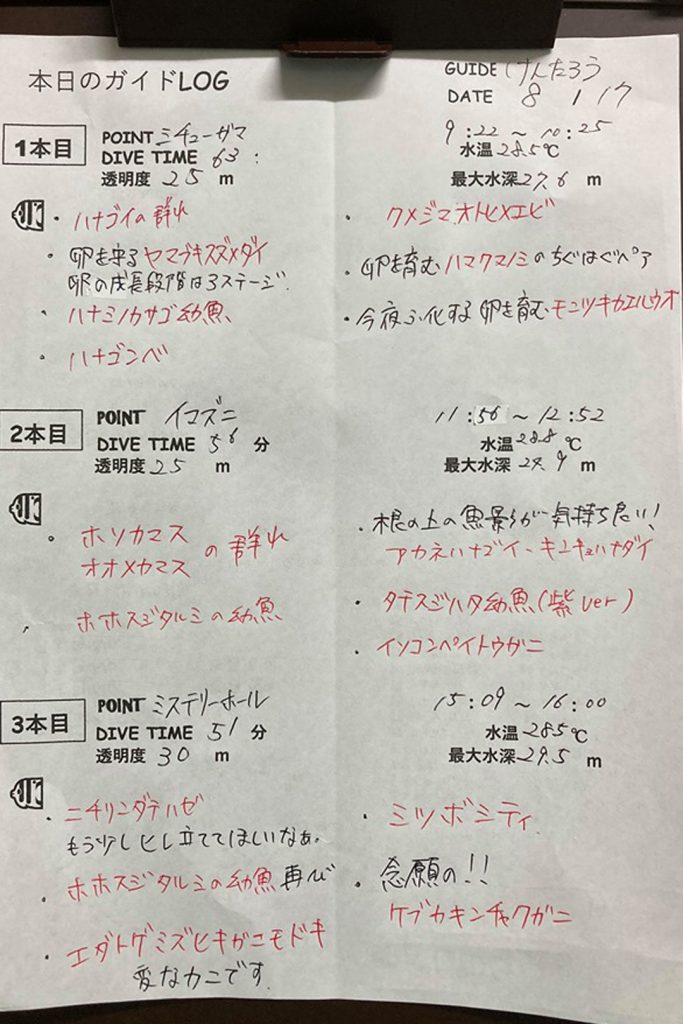 本日のガイドLOG
GUIDE けんたろう
DATE 8 / 17
1本目
POINT ミチューガマ
DIVE TIME 63 :
透明度 25 m
9:22 ~ 10:25
水温 28.5℃
最大水深 27.6 m
・ハナゴイの群れ
・卵を守るヤマブキスズメダイ
卵の成長段階は3ステージ.
・ハナミノカサゴ幼魚
・ハナゴンベ
・クメジマオトヒメエビ
・卵を育むハマクマノミのちぐはぐペア
・今夜ふ化する卵を育むモンツキカエルウオ
2本目
POINT イマズニ
DIVE TIME 56 分
透明度 25 m
11:56 ~ 12:52
水温 28.8 ℃
最大水深 24.9 m
・ホソカマス
オオメカマス の群れ
・ホホスジタルミの幼魚
・根の上の魚影が気持ち良い!
アカネハナゴイ・キンギョハナダイ
・タテスジハタ幼魚(紫ver)
・イソコンペイトウガニ
3本目
POINT ミステリーホール
DIVE TIME 51 分
透明度 30 m
15:09 ~ 16:00
水温 28.5℃
最大水深 29.5 m
・ニチリンダテハゼ
もう少しヒレ立ててほしいなぁ。
・ホホスジタルミの幼魚 再び
・エダトゲミズヒキガニモドキ
変なカニです.
・ミツボシティ
・念願の!!
ケブカキンチャクガニ